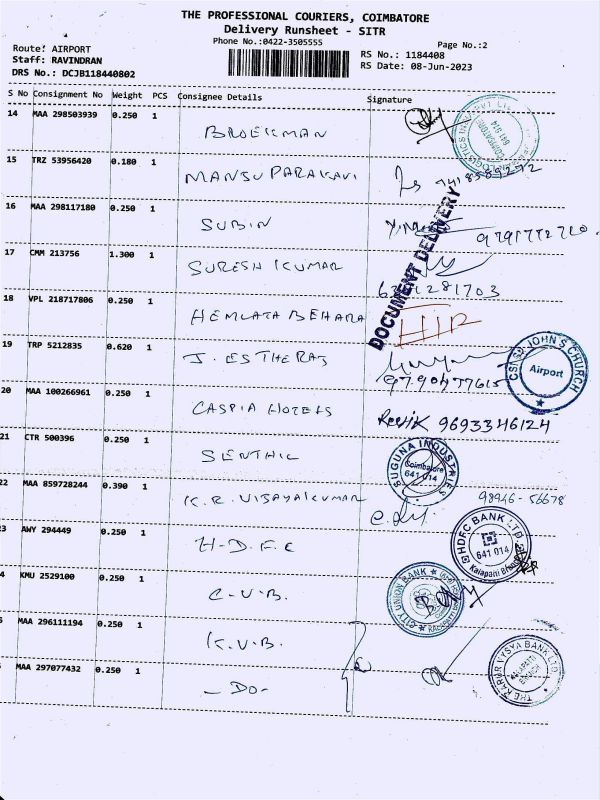 THE PROFESSIONAL COURIERS, COIMBATORE
Delivery Runsheet - SITR
Phone No.:0422-3505555
Page No.:2
Route: AIRPORT
Staff: RAVINDRAN
DRS No.: DCJB118440802
RS No.: 1184408
RS Date: 08-Jun-2023
S No Consignment No Weight PCS Consignee Details Signature
14 MAA 298503939 0.250 1
BROEKMAN
641 014
15 TRZ 53956420 0.180 1
MANSU PARAKAVI
16 MAA 298117180 0.250 1
SUBIN
DOCUMENT DELIVERY
17 CMM 213756 1.300 1
SURESH KUMAR
18 VPL 218717806 0.250 1
HEMLATA BEHARA
19 TRP 5212835 0.620 1
J. ESTHERAJ
9790477615
CSI ST JOHN'S CHURCH
Airport
20 MAA 100266961 0.250 1
CASPIA HOTELS
9693346124
21 CTR 500396 0.250 1
SENTHIL
SUGUNA INDUSTRIES
Coimbatore
641 014
22 MAA 859728244 0.390 1
K.R. VIJAYAKUMAR
98946-56678
3 AWY 294449 0.250 1
H-D.F.C
HDFC BANK LTD
641 014
Kalapatti Branch
4 KMU 2529100 0.250 1
C.V.B.
CITY UNION BANK
MAA 296111194 0.250 1
K.V.B.
MAA 297077432 0.250 1
- DO -
THE KARUR VYSYA BANK LTD.
KALAPATTI
BRANCH